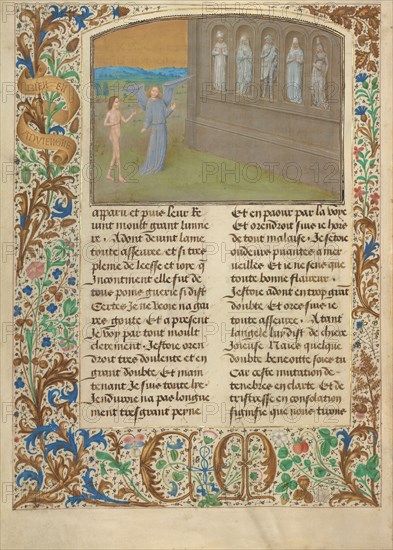 aparu et puis leur Re
uint moult grant lumie
re. Adont deuint lame
toute asseuree. et si tres
plaine de leesse et ioye q
Incontinent elle fut de
tous poins guerie si dist
Certes Je ne veoie na gai
res goute. Et a present
Je voy par tout moult
clerement. Jestoie oren
droit tres doulente et en
grant doubte. Et main
tenant Je suis toute lye.
Jendurove na pas longue
ment tresgrant peyne
Et en paour par la voye
Et orendroit suis ie hors
de tout malaise. Jestoie
ou de puantises a mer
ueilles Et ie ne sens que
toute bonne flaireur.
Jestoie adont en trop grant
doubte. Et ores suis ie
toute asseuree. Atant
langele luy dist. de chiere
Joieuse Naies quelque
doubte benoitte soies tu
Car ceste mutation de
tenebres en clarte. Et de
tristresse en consolation
signifie que nous tirons